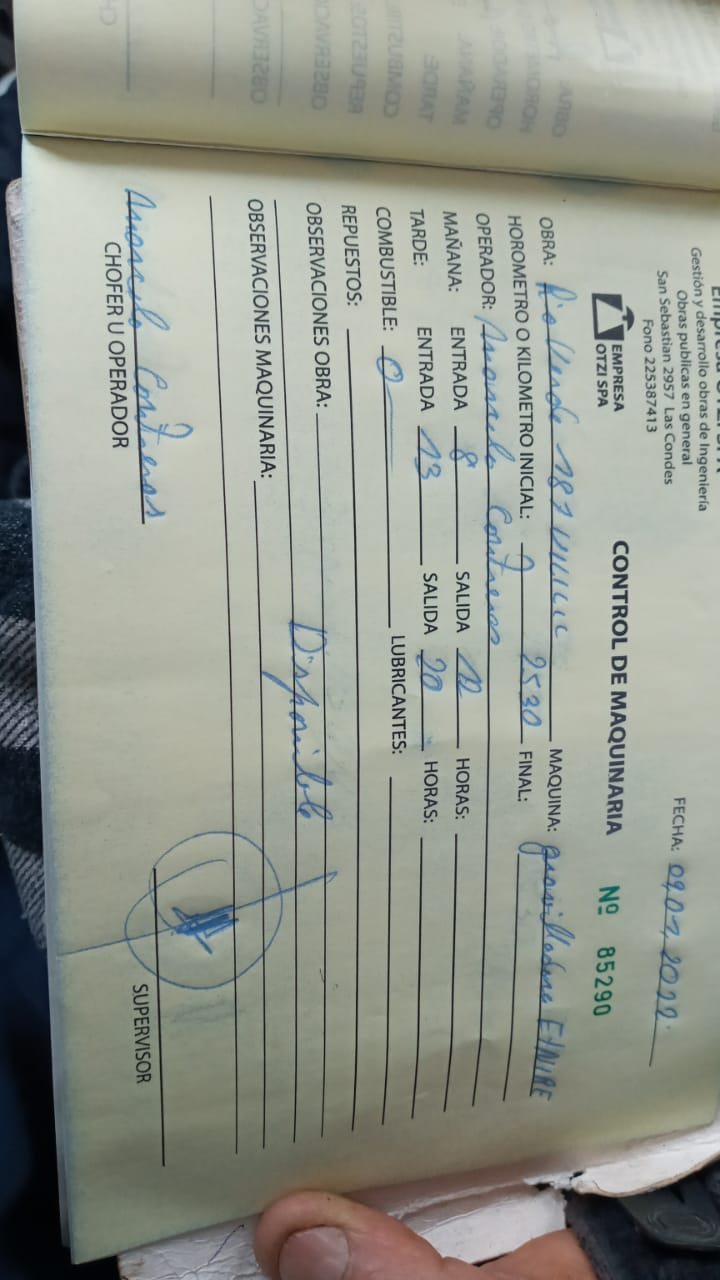 Empresa OTZI SPA
Gestión y desarrollo obras de Ingeniería
Obras publicas en general
San Sebastian 2957 Las Condes
Fono 225387413
FECHA: 09.01.2022
EMPRESA
OTZI SPA
CONTROL DE MAQUINARIA Nº 85290
OBRA: Rio Verde 181 MAQUINA: gravilladora
HOROMETRO O KILOMETRO INICIAL: 2530 FINAL:
OPERADOR: Marcelo Contreras
MAÑANA: ENTRADA 8 SALIDA 12 HORAS:
TARDE: ENTRADA 13 SALIDA 20 HORAS:
COMBUSTIBLE: 0 LUBRICANTES:
REPUESTOS:
OBSERVACIONES OBRA:
Disponible
OBSERVACIONES MAQUINARIA:
Marcelo Contreras
CHOFER U OPERADOR
SUPERVISOR